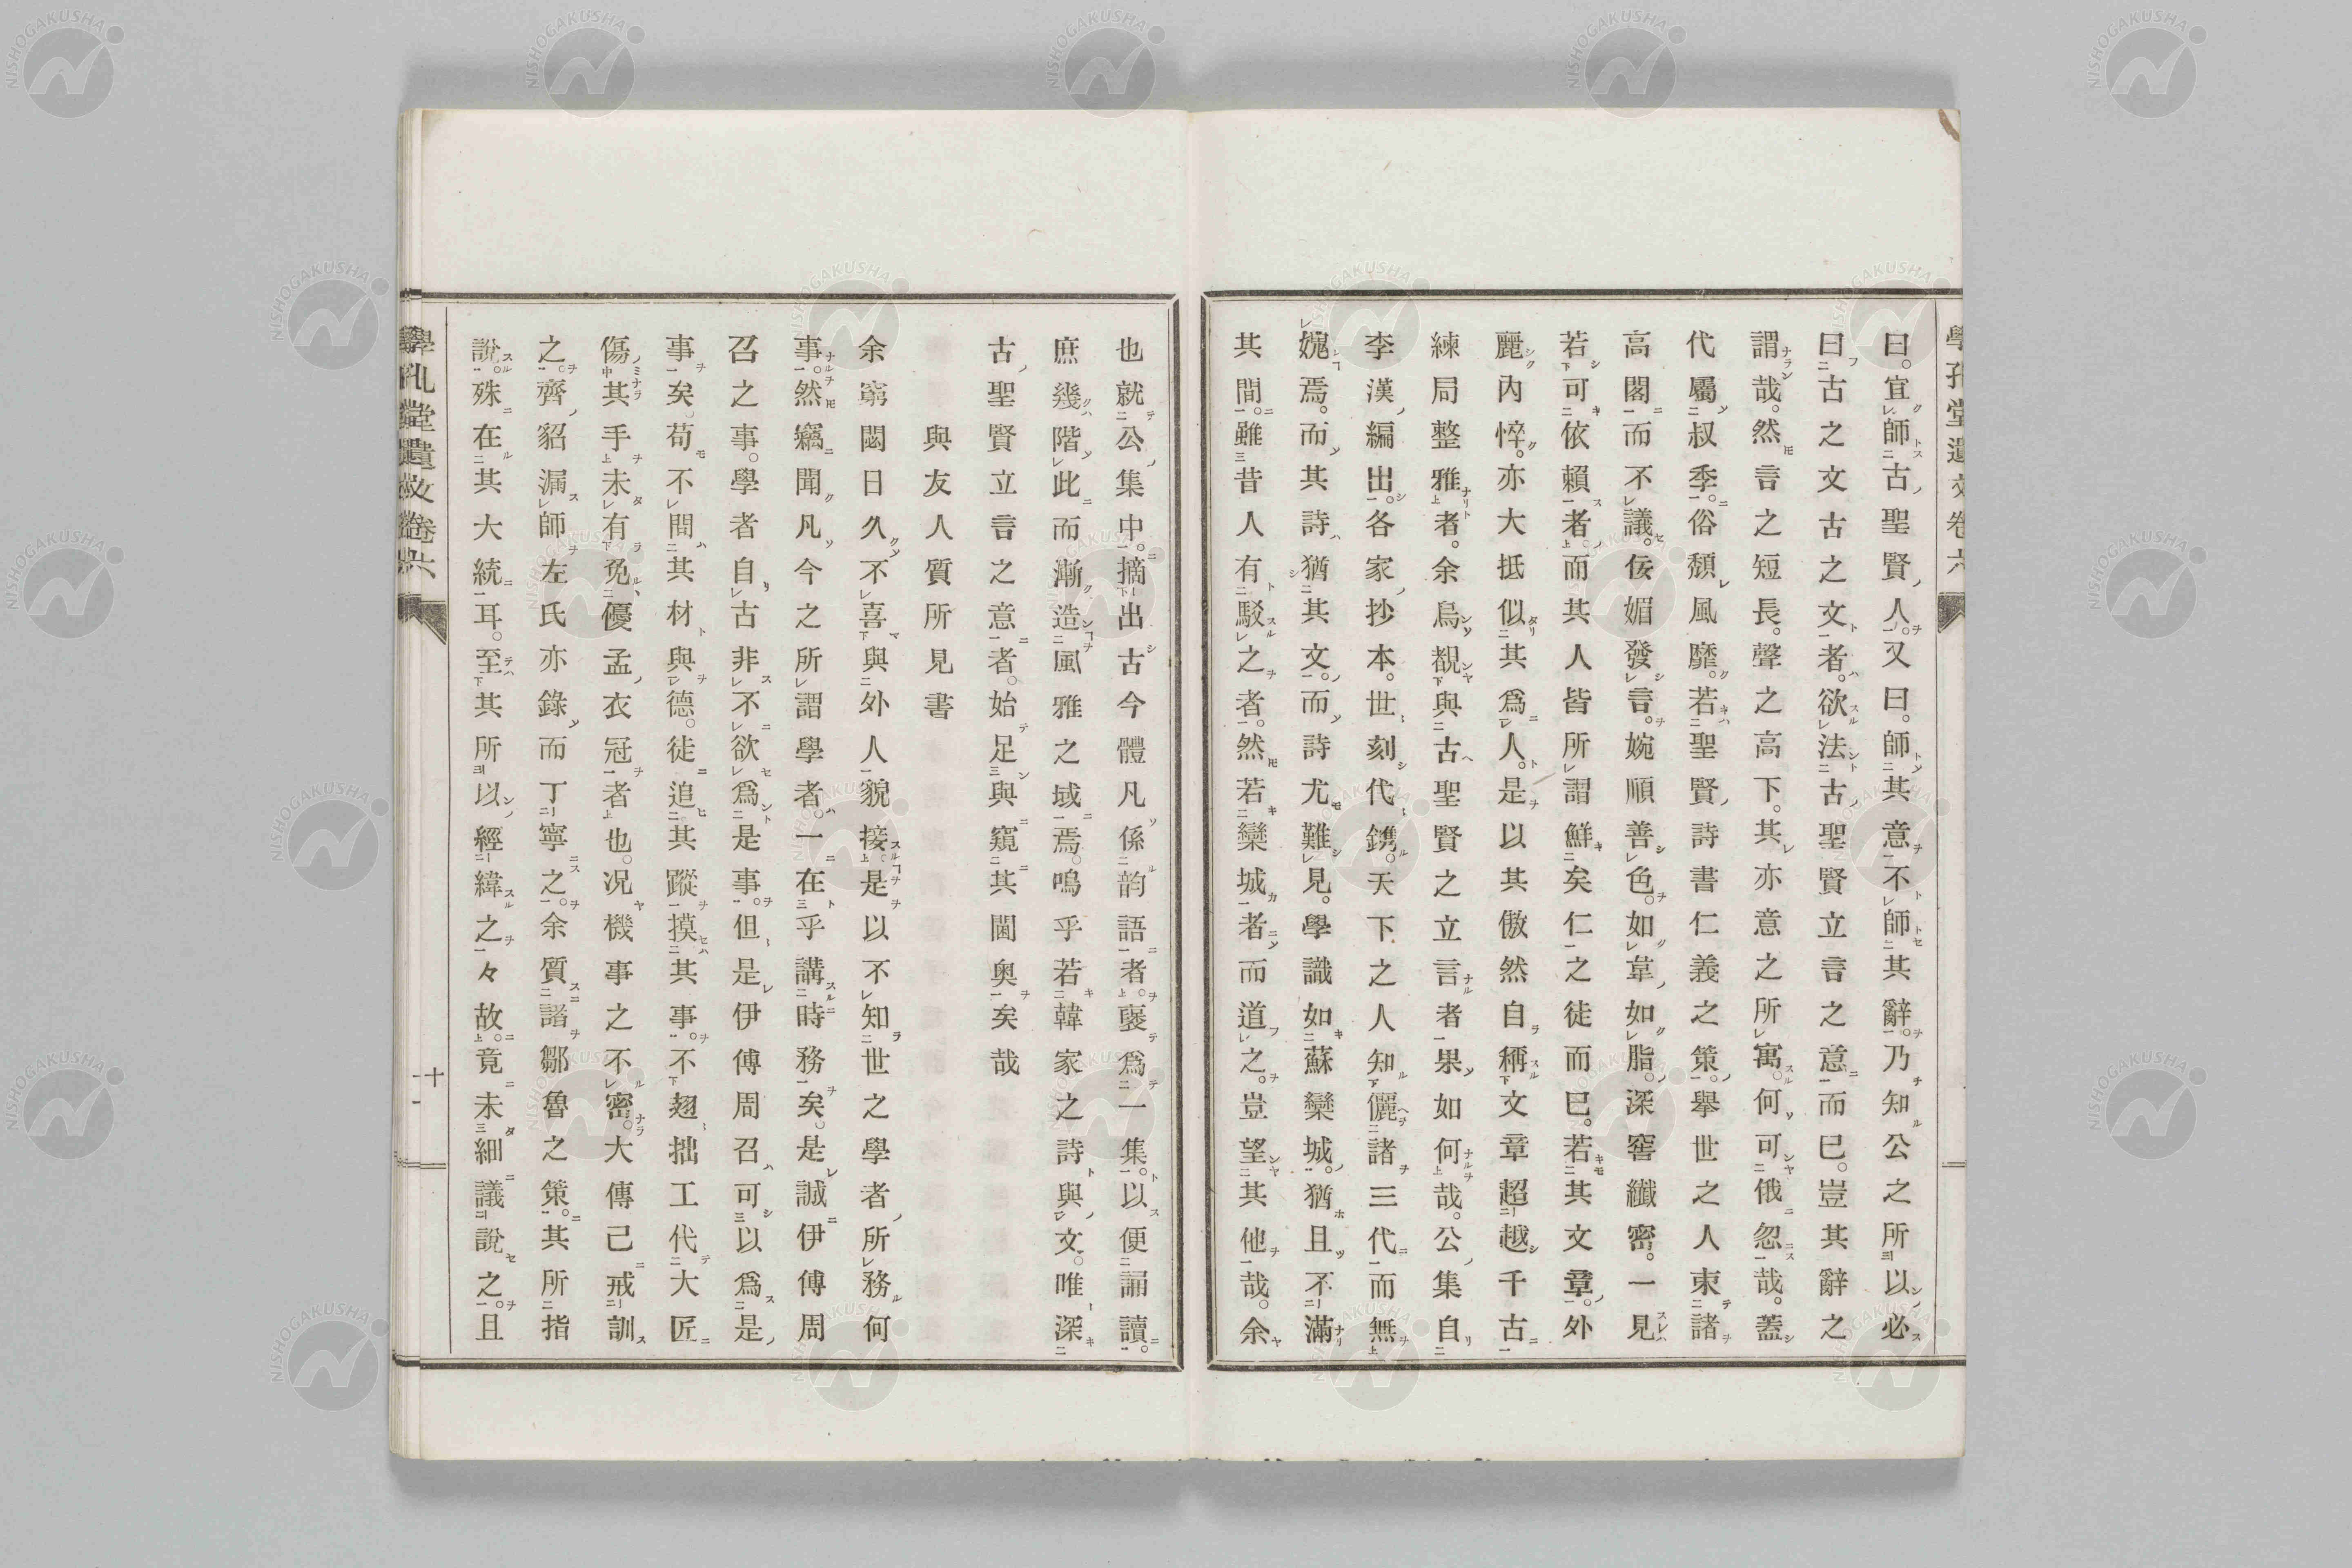 曰。宜師古聖賢人。又曰。師其意不師其辭。乃知公之所以必
曰古之文古之文者。欲法古聖賢立言之意而已。豈其辭之
謂哉。然言之短長。聲之高下。其亦意之所寓。何可俄忽哉。蓋
代屬叔季。俗頽風靡。若聖賢詩書仁義之策。擧世之人束諸
高閣而不議。佞媚發言。婉順善色。如韋如脂。深窖纖密。一見
若可依賴者。而其人皆所謂鮮矣仁之徒而已。若其文章。外
麗內悴。亦大抵似其爲人。是以其傲然自稱文章超越千古
練局整雅者。余烏覩與古聖賢之立言者果如何哉。公集自
李漢編出。各家抄本。世刻代鐫。天下之人知儷諸三代而無
媿焉。而其詩猶其文。而詩尤難見。學識如蘇欒城。猶且不滿
其間。雖昔人有駁之者。然若欒城者而道之。豈望其他哉。余
也就公集中。摘出古今體凡係韵語者。裒爲一集。以便誦讀。
庶幾階此而漸造風雅之域焉。嗚乎若韓家之詩與文。唯深
古聖賢立言之意者。始足與窺其閫奧矣哉
與友人質所見書
余窮閎日久不喜與外人貌接。是以不知世之學者所務何
事。然竊聞凡今之所謂學者。一在乎講時務矣。是誠伊傅周
召之事。學者自古非不欲爲是事。但是伊傅周召可以爲是
事矣。苟不問其材與德。徒追其蹤摸其事。不翅拙工代大匠
傷其手未有免優孟衣冠者也。况機事之不密。大傳己戒訓
之。齊貂漏師左氏亦錄而丁寧之。余質諸鄒魯之策。其所指
說。殊在其大統耳。至其所以經緯之々故。竟未細議說之。且
學孔堂遺文卷六
十一